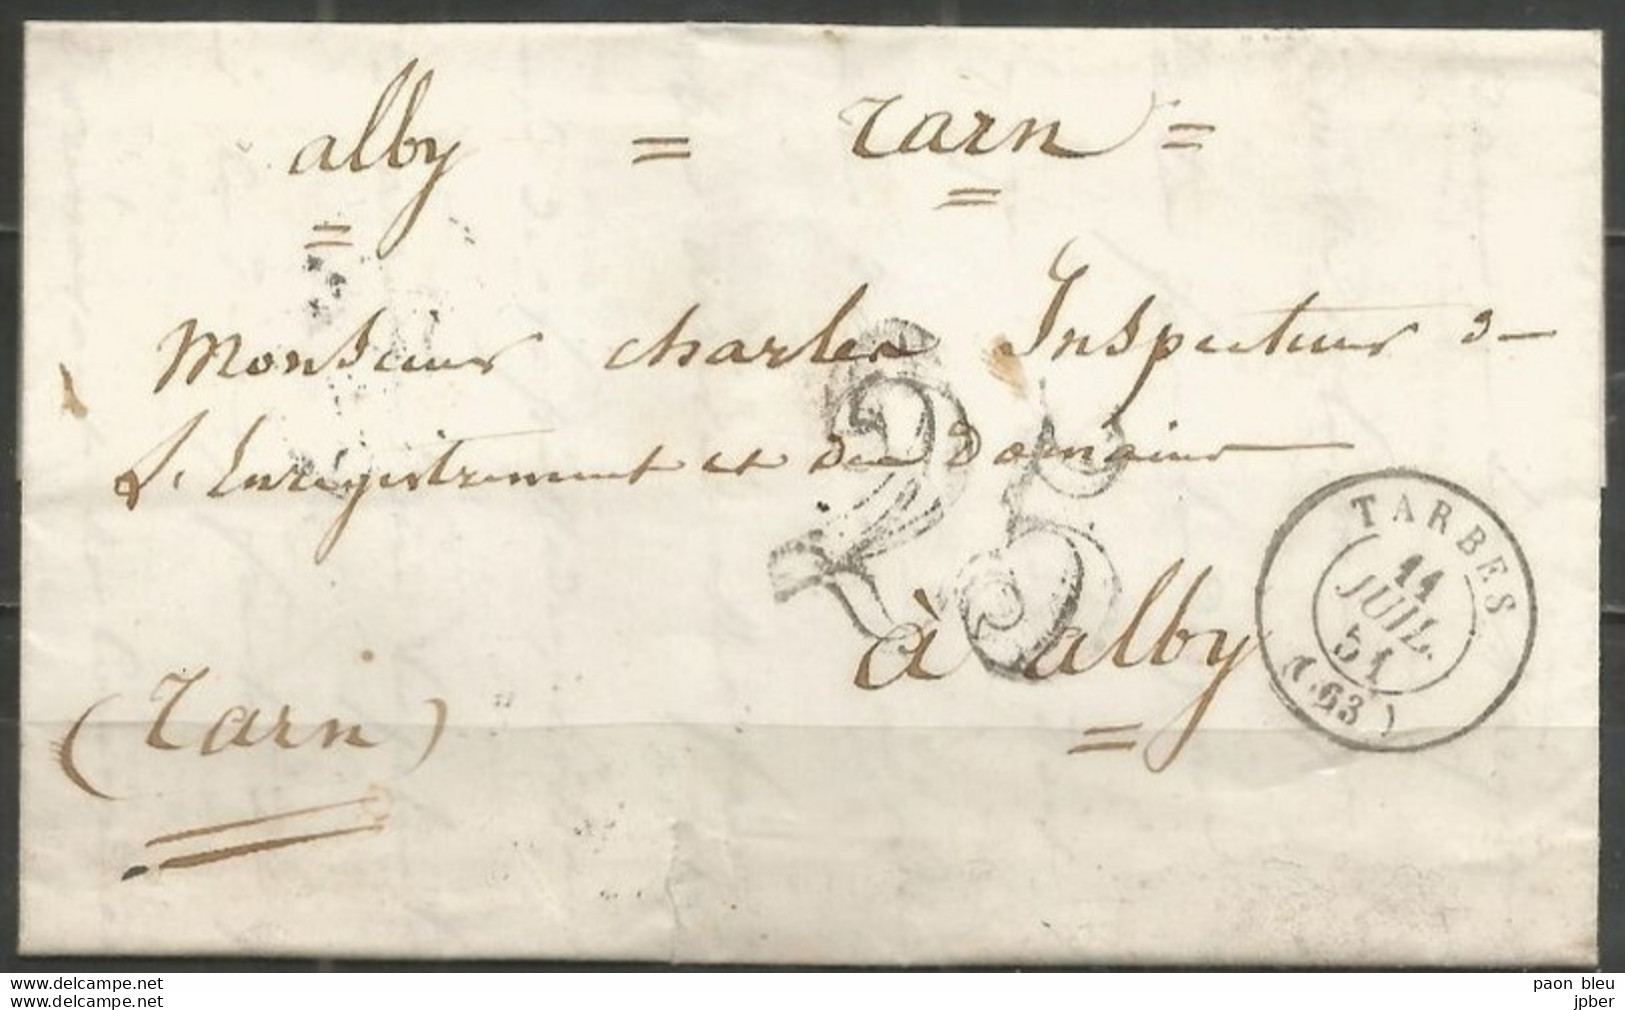 alby = Tarn =
Monsieur Charles Inspecteur d
L'Enregistrement et des Domaines
25
à alby
(Tarn)
TARBES
11
JUIL.
51
(63)
delcampe.net
delcampe.net
paon bleu
jpber